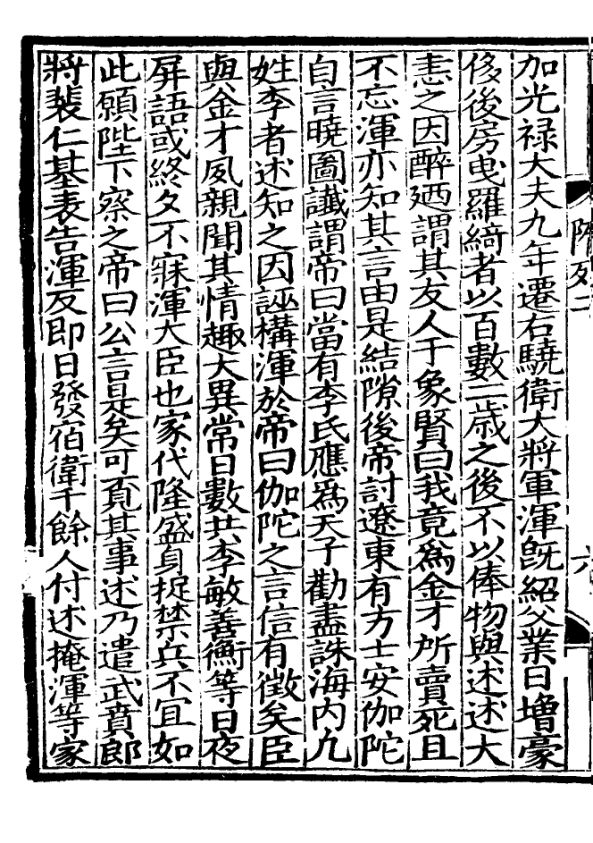 加光禄大夫九年遷右驍衛大將軍渾旣紹父業日增豪
侈後房曵羅綺者以百數二歳之後不以俸物與述述大
恚之因醉廼謂其友人于象賢曰我竟爲金才所賣死且
不忘渾亦知其言由是結隙後帝討遼東有方士安伽陀
自言曉圖讖謂帝曰當有李氏應爲天子勸盡誅海内凡
姓李者述知之因誣構渾於帝曰伽陀之言信有徵矣臣
與金才夙親聞其情趣大異常日數共李敏善衡等日夜
屏語或終夕不寐渾大臣也家代隆盛身捉禁兵不宜如
此願陛下察之帝曰公言是矣可覔其事述乃遣武賁郎
將裴仁基表告渾反即日發宿衛千餘人付述掩渾等家
隋列二
六